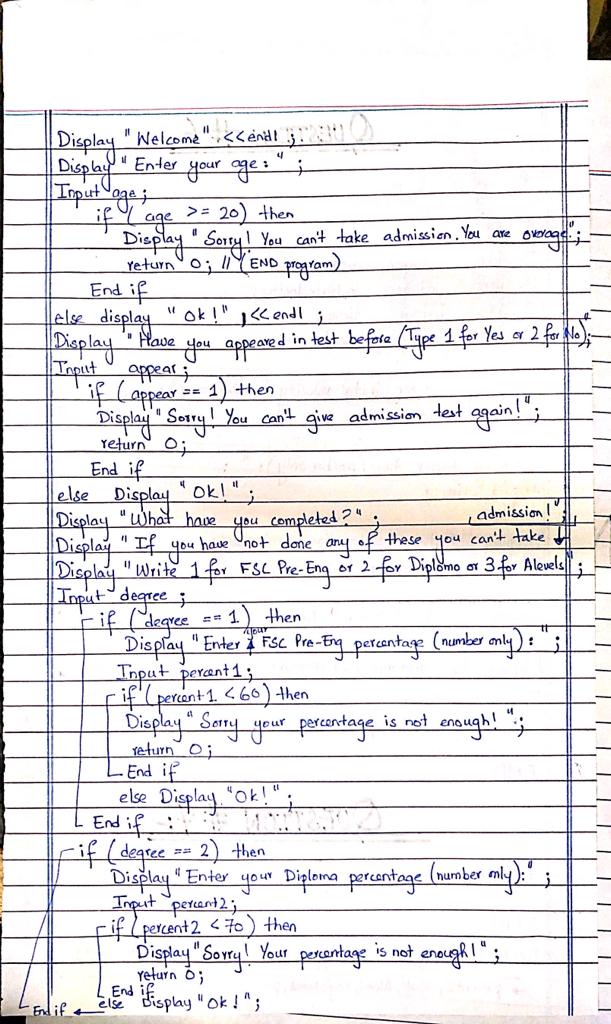 Display "Welcome" <<endl ;
Display "Enter your age: " ;
Input age;
if ( age >= 20) then
Display "Sorry! You can't take admission. You are overage!";
return 0; // (END program)
End if
else display "Ok!" , <<endl ;
Display "Have you appeared in test before (Type 1 for Yes or 2 for No)";
Input appear;
if (appear == 1) then
Display "Sorry! You can't give admission test again!";
return 0;
End if
else Display "Ok!";
Display "What have you completed?";
Display "If you have not done any of these you can't take admission!";
Display "Write 1 for FSC Pre-Eng or 2 for Diploma or 3 for Alevels";
Input degree ;
if (degree == 1) then
Display "Enter your FSC Pre-Eng percentage (number only) : ";
Input percent1;
if (percent1 <60) then
Display "Sorry your percentage is not enough! ";
return 0;
End if
else Display "Ok!";
End if
if (degree == 2) then
Display "Enter your Diploma percentage (number only):" ;
Input percent2;
if (percent2 <70) then
Display "Sorry! Your percentage is not enough!";
return 0;
End if
else Display "Ok!";
End if